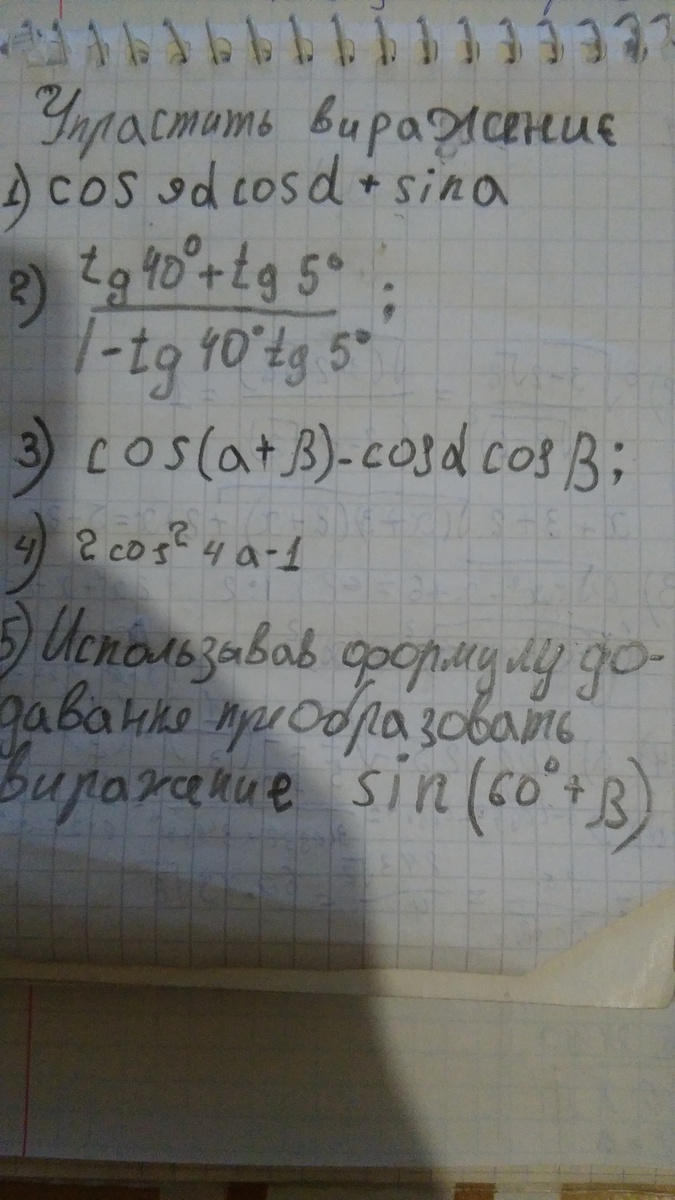 Упрастить виражение
1) cos 9α cosα + sina
2) tg 40° + tg 5°
1 - tg 40° tg 5° ;
3) cos(a+β) - cosα cosβ;
4) 2 cos² 4a-1
5) Использывав формулу до-
давання приобразовать
виражение sin(60°+β)